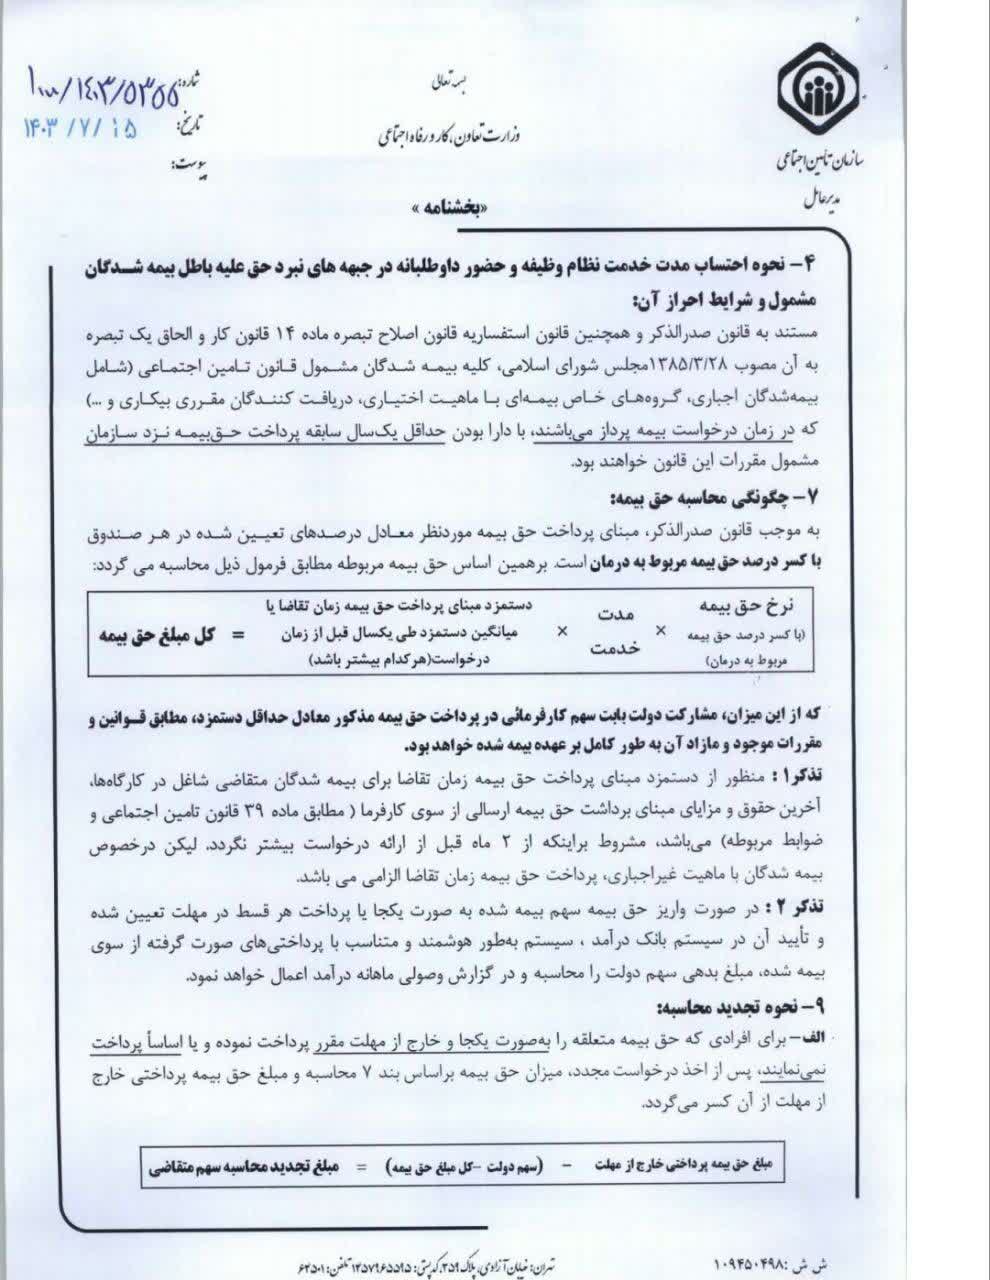 بسمه تعالی
وزارت تعاون، کار و رفاه اجتماعی
سازمان تأمین اجتماعی
مدیرعامل
شماره: ۱۰۰۰/۱۴۰۳/۵۳۵۵
تاریخ: ۱۴۰۳/۷/۱۵
پیوست:
«بخشنامه»
۴- نحوه احتساب مدت خدمت نظام وظیفه و حضور داوطلبانه در جبهه های نبرد حق علیه باطل بیمه شدگان
مشمول و شرایط احراز آن:
مستند به قانون صدرالذکر و همچنین قانون استفساریه قانون اصلاح تبصره ماده ۱۴ قانون کار و الحاق یک تبصره
به آن مصوب ۱۳۸۵/۳/۲۸مجلس شورای اسلامی، کلیه بیمه شدگان مشمول قانون تامین اجتماعی (شامل
بیمه‌شدگان اجباری، گروه‌های خاص بیمه‌ای با ماهیت اختیاری، دریافت کنندگان مقرری بیکاری و ...)
که در زمان درخواست بیمه پرداز می‌باشند، با دارا بودن حداقل یک‌سال سابقه پرداخت حق‌بیمه نزد سازمان
مشمول مقررات این قانون خواهند بود.
۷- چگونگی محاسبه حق بیمه:
به موجب قانون صدرالذکر، مبنای پرداخت حق بیمه موردنظر معادل درصدهای تعیین شده در هر صندوق
با کسر درصد حق بیمه مربوط به درمان است. برهمین اساس حق بیمه مربوطه مطابق فرمول ذیل محاسبه می گردد:
نرخ حق بیمه
(با کسر درصد حق بیمه
مربوط به درمان)
×
مدت
خدمت
×
دستمزد مبنای پرداخت حق بیمه زمان تقاضا یا
میانگین دستمزد طی یکسال قبل از زمان
درخواست(هرکدام بیشتر باشد)
= کل مبلغ حق بیمه
که از این میزان، مشارکت دولت بابت سهم کارفرمائی در پرداخت حق بیمه مذکور معادل حداقل دستمزد، مطابق قوانین و
مقررات موجود و مازاد آن به طور کامل بر عهده بیمه شده خواهد بود.
تذکر۱: منظور از دستمزد مبنای پرداخت حق بیمه زمان تقاضا برای بیمه شدگان متقاضی شاغل در کارگاه‌ها،
آخرین حقوق و مزایای مبنای برداشت حق بیمه ارسالی از سوی کارفرما ( مطابق ماده ۳۹ قانون تامین اجتماعی و
ضوابط مربوطه) می‌باشد، مشروط براینکه از ۲ ماه قبل از ارائه درخواست بیشتر نگردد. لیکن درخصوص
بیمه شدگان با ماهیت غیراجباری، پرداخت حق بیمه زمان تقاضا الزامی می باشد.
تذکر ۲: در صورت واریز حق بیمه سهم بیمه شده به صورت یکجا یا پرداخت هر قسط در مهلت تعیین شده
و تأیید آن در سیستم بانک درآمد ، سیستم به‌طور هوشمند و متناسب با پرداختی‌های صورت گرفته از سوی
بیمه شده، مبلغ بدهی سهم دولت را محاسبه و در گزارش وصولی ماهانه درآمد اعمال خواهد نمود.
۹- نحوه تجدید محاسبه:
الف- برای افرادی که حق بیمه متعلقه را به‌صورت یکجا و خارج از مهلت مقرر پرداخت نموده و یا اساساً پرداخت
نمی‌نمایند، پس از اخذ درخواست مجدد، میزان حق بیمه براساس بند ۷ محاسبه و مبلغ حق بیمه پرداختی خارج
از مهلت از آن کسر می‌گردد.
مبلغ حق بیمه پرداختی خارج از مهلت - (سهم دولت -کل مبلغ حق بیمه) = مبلغ تجدید محاسبه سهم متقاضی
ش ش: ۱۰۹۴۵۰۴۹۸
تهران: خیابان آزادی، پلاک ۳۵۹، کدپستی: ۱۴۵۷۹۶۵۵۹۵ تلفن: ۶۴۵۰۱